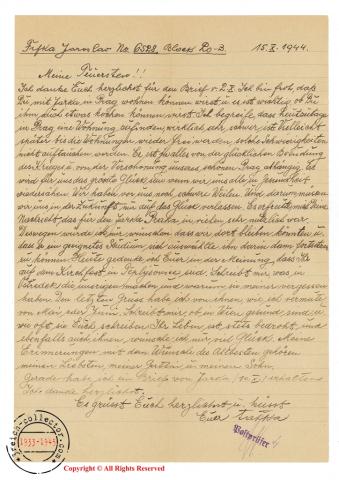 Fifka Jaroslav No 6528. Block 20-3. 15.X.1944.
Meine Teuersten!!
Ich danke Euch herzlichst für den Brief v. 2.X. Ich bin froh, daß
Du mit Jarda in Prag wohnen können wirst u. es ist wichtig, ob Du
ihm auch etwas kochen können wirst. Ich begreife, dass heutzutage
in Prag eine Wohnung zu finden, wirklich sehr schwer ist. Vielleicht
später bis die Wohnungen wieder frei werden, solche Schwierigkeiten
nicht auftauchen werden. Es ist für alles von der glücklichen Beendung
des Krieges u. von der Verschonung unseres schönen Prag abhängig. Es
wird für uns das große Glück sein, wenn wir uns alle in Gesundheit
wiedersehen. Wir haben vor uns noch schwere Weilen. Und darum müssen
wir uns in der Zukunft nur auf das Glück verlassen. Es erfreute mich Deine
Nachricht, das für den Jarda Praha in vielen sehr nützlich war.
Deswegen würde ich mir wünschen, dass wir dort bleiben könnten u.
dass er ein geeignetes Studium sich auswählte, um darin dann fortsetzen
zu können. Heute gedenke ich Euer in der Meinung, dass Ihr
auf dem Kirchfest in seid. Schreibt mir, was in
die unserigen machen und warum sie meiner vergessen
haben. Den letzten Gruss habe ich von ihnen, wie ich vermute
von Mai oder Juni. Schreibt mir, ob in Wien gesund sind u.
wie oft sie Euch schreiben. Ihr Leben ist stets bedroht und
ebenfalls auch ihnen wünsche ich nur viel Glück. Meine
Erinnerungen mit dem Wunsche des Allbesten gehören
meinen Liebsten, meiner Gattin u. meinem Sohn.
Gerade habe ich ein Brief von Jarda 10/X erhalten.
Ich danke herzlichst.
Es grüsst Euch herzlichst u. küsst
Euer
Postprüfer 4
reich-collector.com
1933-1945
Copyright © All Rights Reserved